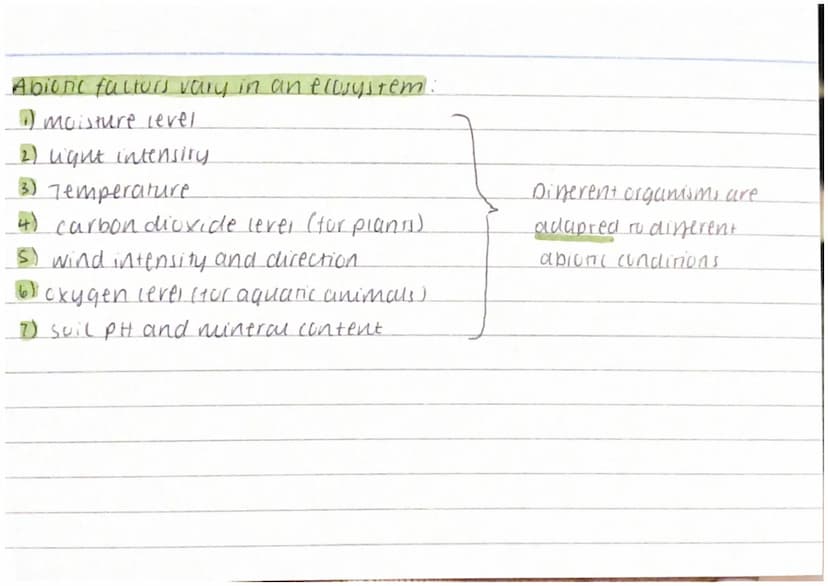 Abiotic factors vary in an ecosystem:
1) moisture level
2) light intensity
3) Temperature
4) carbon dioxide level (for plants)
5) wind intensity and direction
6) oxygen level (for aquatic animals)
7) soil pH and mineral content
Different organisms are
adapted to different
abiotic conditions